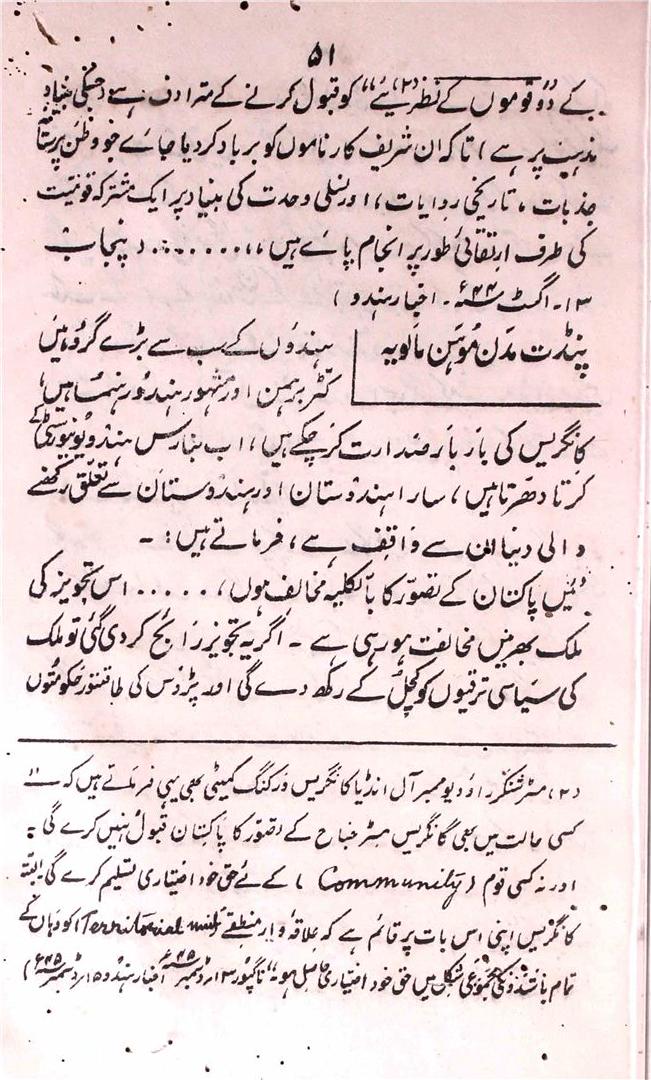 ۵۱
کے دو قوموں کے نظریئے (۲)،، کو قبول کرنے کے مترادف ہے (جسکی بنیاد
مذہب پر ہے) تاکہ ان شریف کارناموں کو برباد کر دیا جائے جو وطن پرستانہ
جذبات، تاریخی روایات، اور نسلی وحدت کی بنیاد پر ایک مشترکہ قومیت
کی طرف ارتقائی طور پر انجام پائے ہیں،،....... (پنجاب
۱۳۔ اگست ۴۴ء۔ اخبار ہندو)
پنڈت مدن موہن مالویہ ہندوں کے سب سے بڑے گرو ہیں
کٹر برہمن اور مشہور ہندو رہنما ہیں،
کانگریس کی بار بار صدارت کر چکے ہیں، اب بنارس ہندو یونیورسٹی کے
کرتا دھرتا ہیں، سارا ہندوستان اور ہندوستان سے تعلق رکھنے
والی دنیا ان سے واقف ہے، فرماتے ہیں:۔
"میں پاکستان کے تصور کا بالکلیہ مخالف ہوں، ..... اس تجویز کی
ملک بھر میں مخالفت ہو رہی ہے۔ اگر یہ تجویز رائج کر دی گئی تو ملک
کی سیاسی ترقیوں کو کچل کے رکھ دے گی اور پڑوس کی طاقتور حکومتوں
(۲) مسٹر شنکر راؤ دیو ممبر آل انڈیا کانگریس ورکنگ کمیٹی بھی یہی فرماتے ہیں کہ "
کسی حالت میں بھی کانگریس مسٹر جناح کے تصور کا پاکستان قبول نہیں کرے گی۔
اور نہ کسی قوم (Community) کے لئے حق خود اختیاری تسلیم کرے گی البتہ
کانگریس اپنی اس بات پر قائم ہے کہ علاقہ وار منطقے (Territorial unit) کو وہاں کے
تمام باشندونکی مجموعی شکل میں حق خود اختیاری حاصل ہو۔" (ناگپور ۱۳ دسمبر ۴۵ء اخبار ہندو ۱۵ دسمبر ۴۵ء)